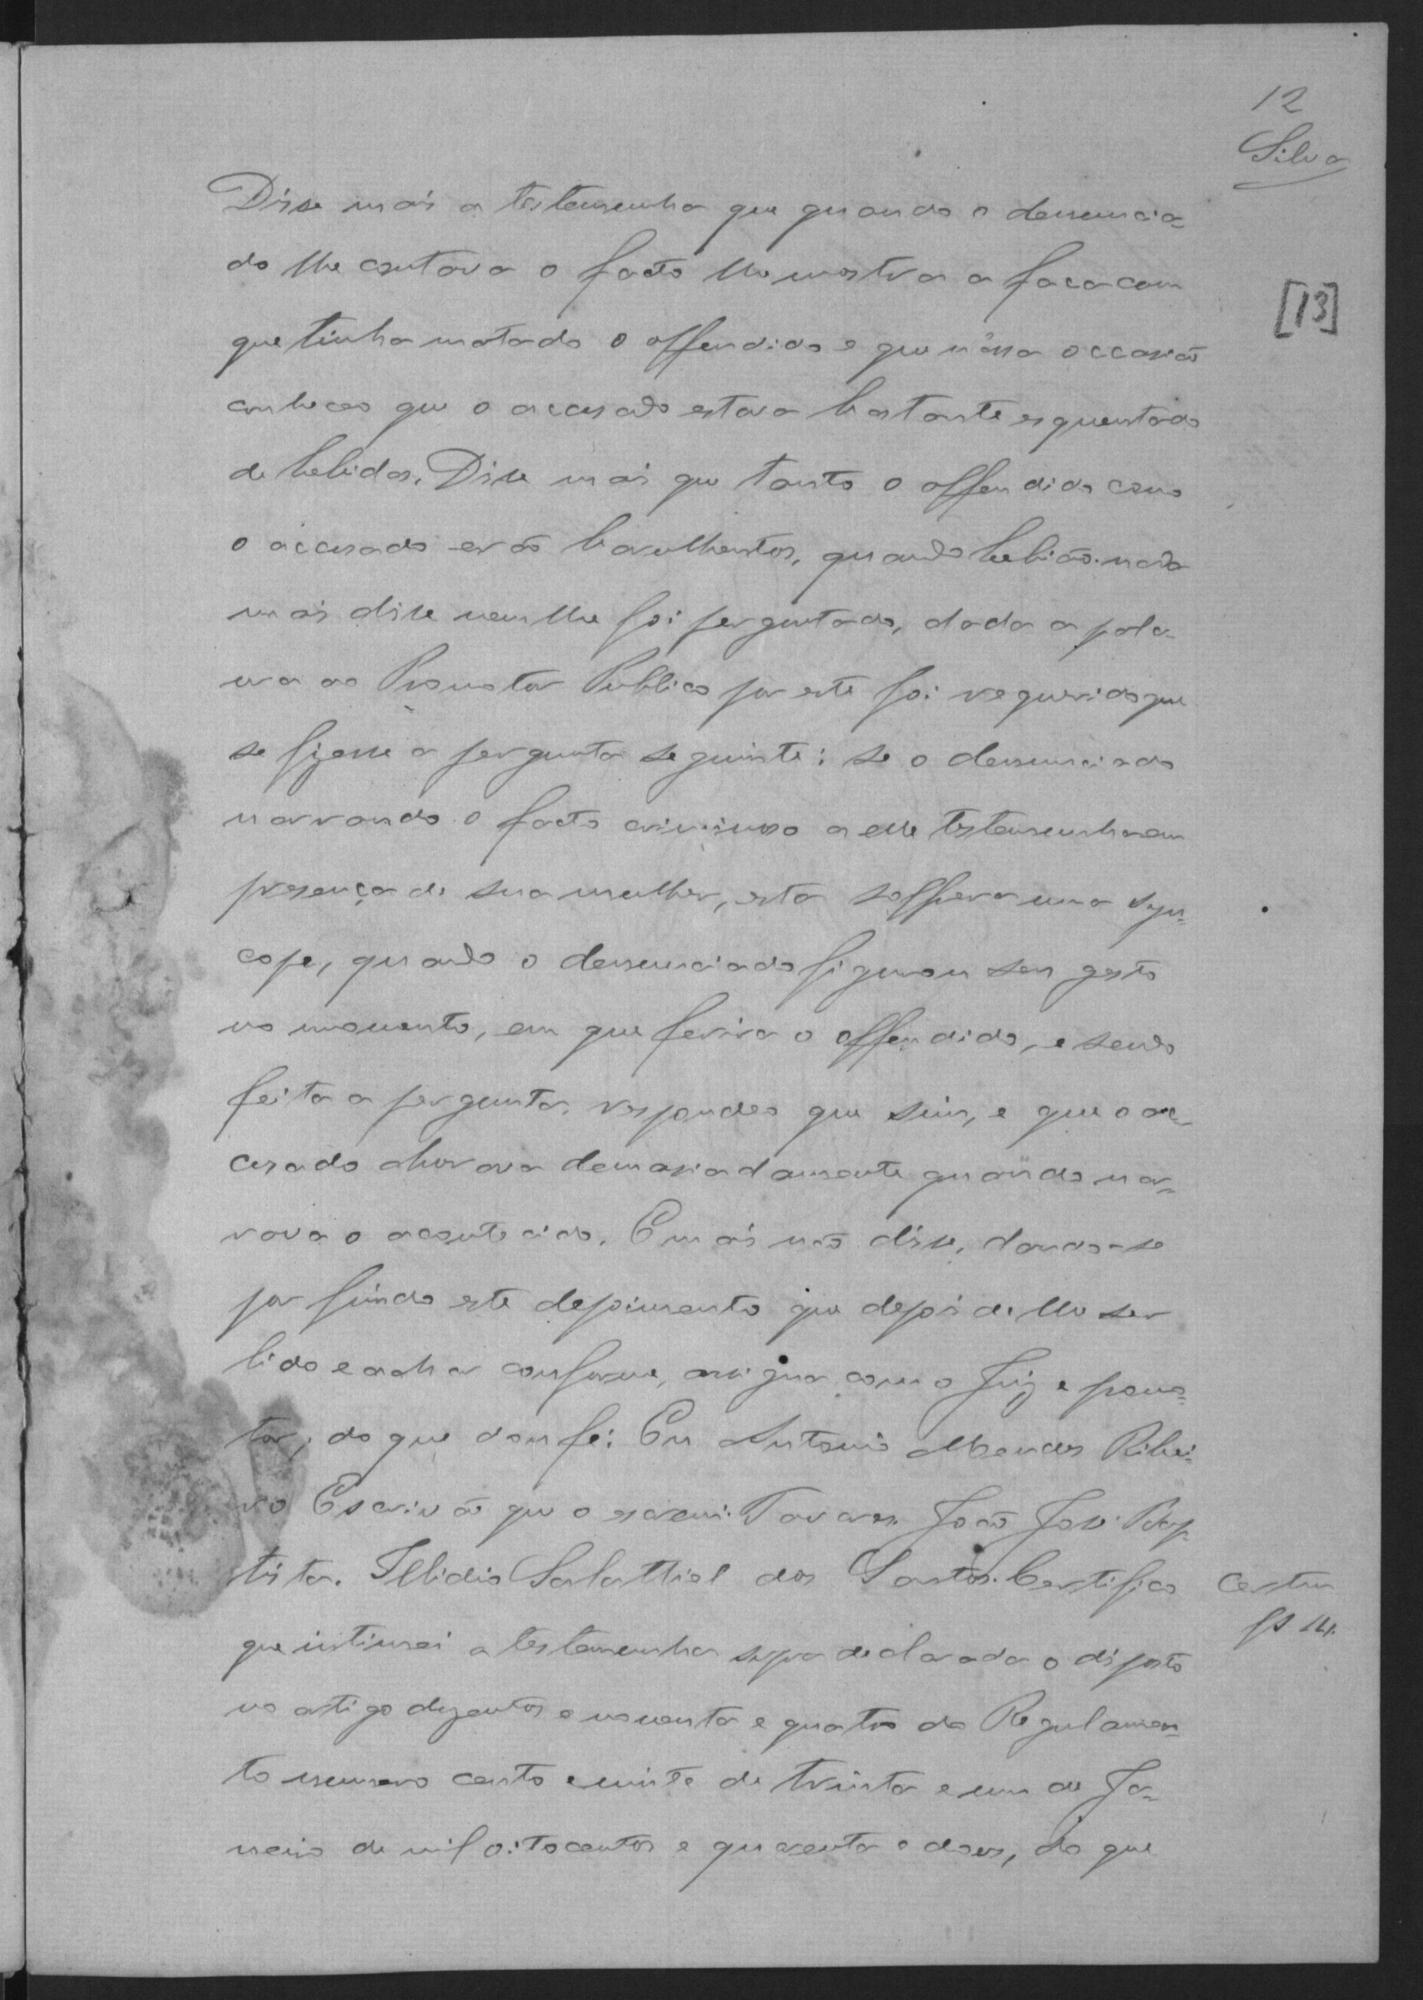 12
Silva
Disse mais a testemunha que quando o denuncia-
do lhe contava o facto lhe mostrava a faca com
[13]
que tinha matado o offendido e que nessa occasião
conheceo que o accusado estava bastante esquentado
de bebidas. Disse mais que tanto o offendido como
o accusado erão barulhentos, quando bebião. nada
mais disse nem lhe foi perguntado, dada a pala-
vra ao Promotor Publico por este foi requerido que
se fizesse a pergunta seguinte: se o denunciado
narrando o facto criminoso a elle testemunha em
presença de sua mulher, esta soffrera uma syn-
cope, quando o denunciado figurou seu gesto
no momento, em que ferira o offendido, e sendo
feita a pergunta, respondeo que sim, e que o ac-
cusado chorava demasiadamente quando nar-
rava o acontecido. E mais não disse, dando-se
por findo este depoimento que depois de lhe ser
lido e achar conforme, assigna com o Juiz e promo-
tor, do que dou fé. Eu Antonio Mendes Ribei-
ro Escrivão que o escrevi. Tavares. João José Bap-
tista. Illidio Salathiel dos Santos. Certifico
fs 14.
que intimei a testemunha supra declarada o disposto
no artigo duzentos e noventa e quatro do Regulamen-
to numero cento e vinte de trinta e um de Ja-
neiro de mil oitocentos e quarenta e dous, do que